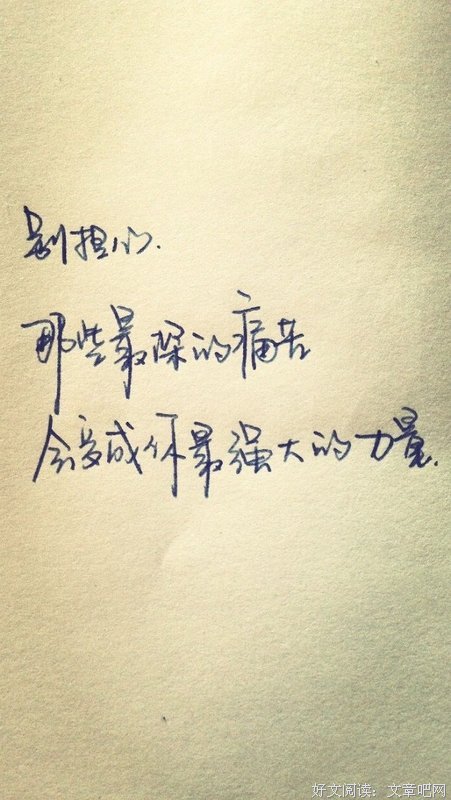 别担心.
那些最深的痛苦
会变成你最强大的力量.
好文阅读：文章吧网